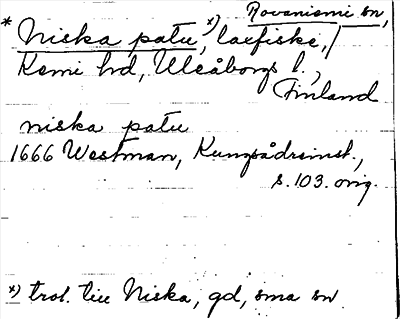 Rovaniemi sn,
* Niska patu, *) laxfiske, /
Kemi hd, Uleåborgs l.,
Finland
niska patu
1666 Westman, Kungsådreinst.,
s. 103. orig.
*) trol. till Niska, gd, sma sn.